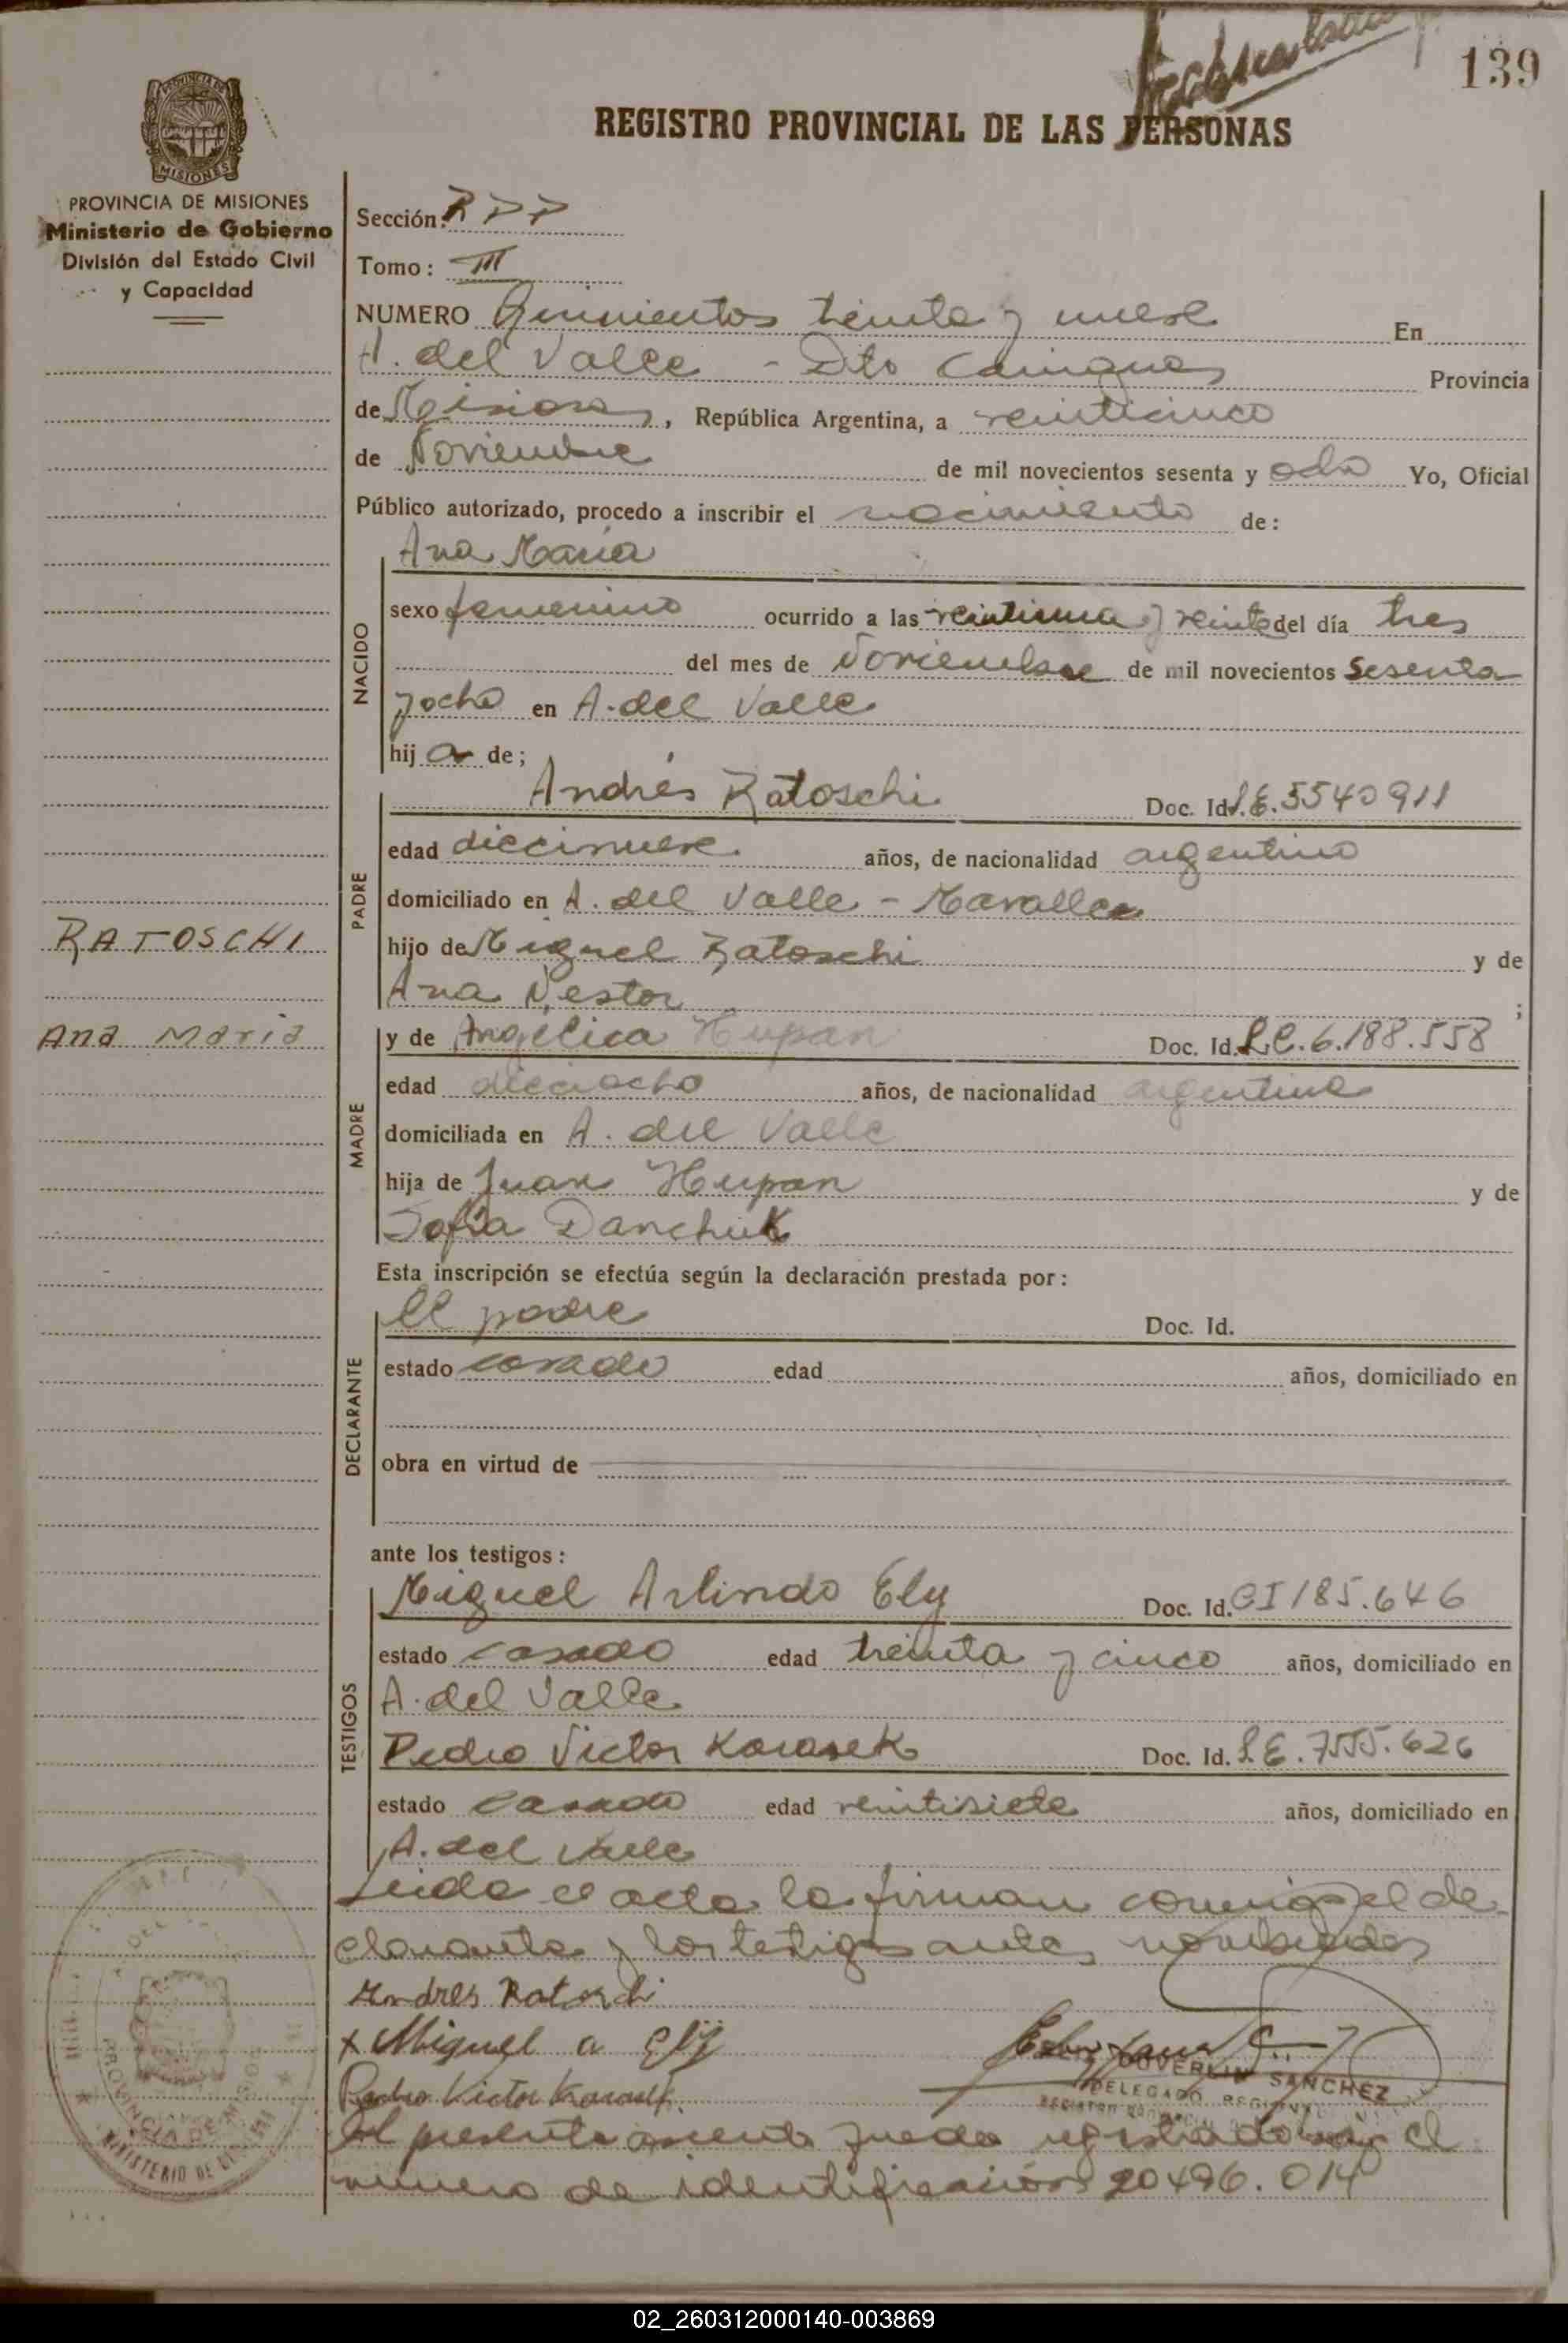 139
REGISTRO PROVINCIAL DE LAS PERSONAS
MISIONES
PROVINCIA DE MISIONES
Ministerio de Gobierno
División del Estado Civil
y Capacidad
RATOSCHI
Ana Maria
Sección: RDD
Tomo: III
NUMERO Quinientos treinta y nueve En
A. del Valle - Dto Cainguas Provincia
de Misiones, República Argentina, a veinticinco
de Noviembre de mil novecientos sesenta y ocho Yo, Oficial
Público autorizado, procedo a inscribir el nacimiento de:
Ana Maria
NACIDO
sexo femenino ocurrido a las veintiuna y veinte del día tres
del mes de Noviembre de mil novecientos sesenta
y ocho en A. del Valle
hij a de;
PADRE
Andrés Ratoschi Doc. Id. L.E. 5540911
edad diecinueve años, de nacionalidad argentino
domiciliado en A. del Valle -
hijo de Miguel Ratoschi y de
Ana Nestor ;
MADRE
y de Angélica Hupan Doc. Id. L.C. 6.188.558
edad dieciocho años, de nacionalidad argentina
domiciliada en A. del Valle
hija de Juan Hupan y de
Sofia Danchuk
Esta inscripción se efectúa según la declaración prestada por:
DECLARANTE
el padre Doc. Id.
estado casado edad años, domiciliado en
obra en virtud de
ante los testigos:
TESTIGOS
Miguel Arlindo Ely Doc. Id. CI 185.646
estado casado edad treinta y cinco años, domiciliado en
A. del Valle
Pedro Victor Karasek Doc. Id. L.E. 7555.626
estado casado edad veintisiete años, domiciliado en
A. del Valle
Leida el acta la firman conmigo el de-
clarante y los testigos antes nombrados
Andres Ratoschi
x Miguel a Ely
Pedro Victor Karasek
SANCHEZ
DELEGADO
El presente asiento queda registrado bajo el
numero de identificación 20496.014
02_260312000140-003869